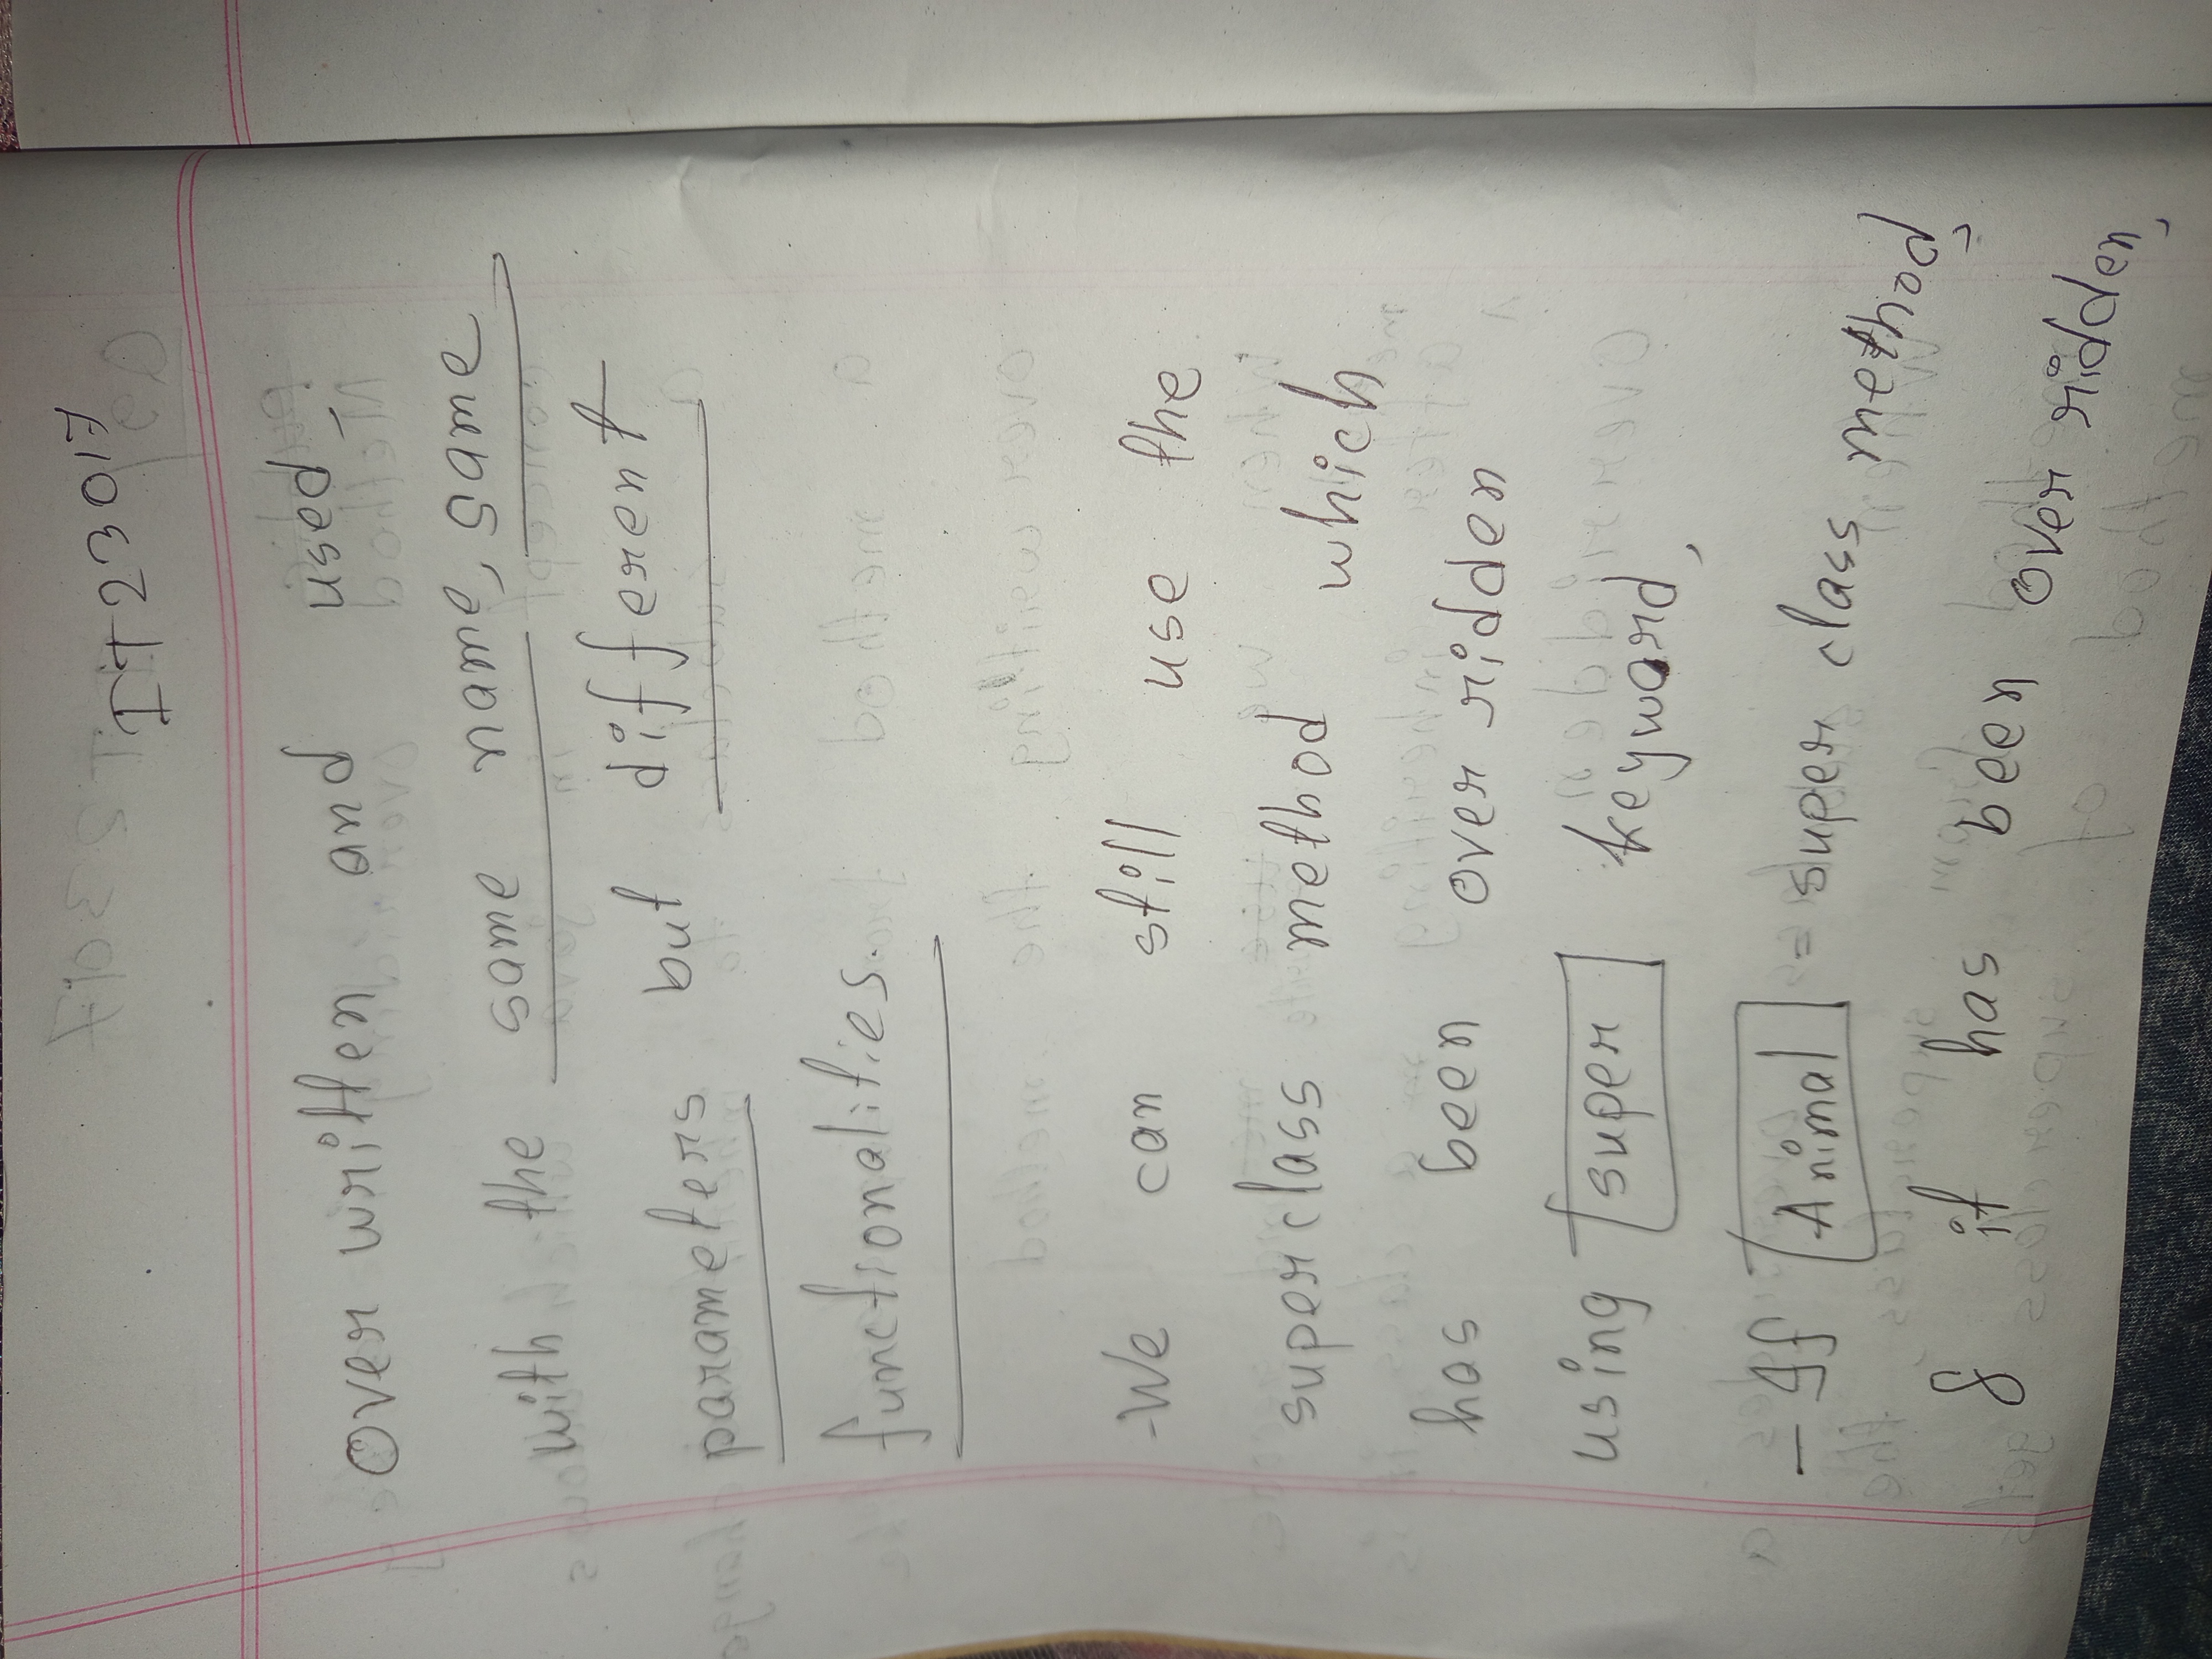 IT23017
over written and used,
with the same name, same
parameters but different
functionalities.
-We can still use the
superclass method which
has been over ridden
using super keyword,
- If Animal = super class method,
& it has been over ridden,